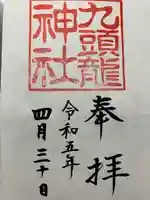 九頭龍
神社
奉拝
令和五年
四月三十日